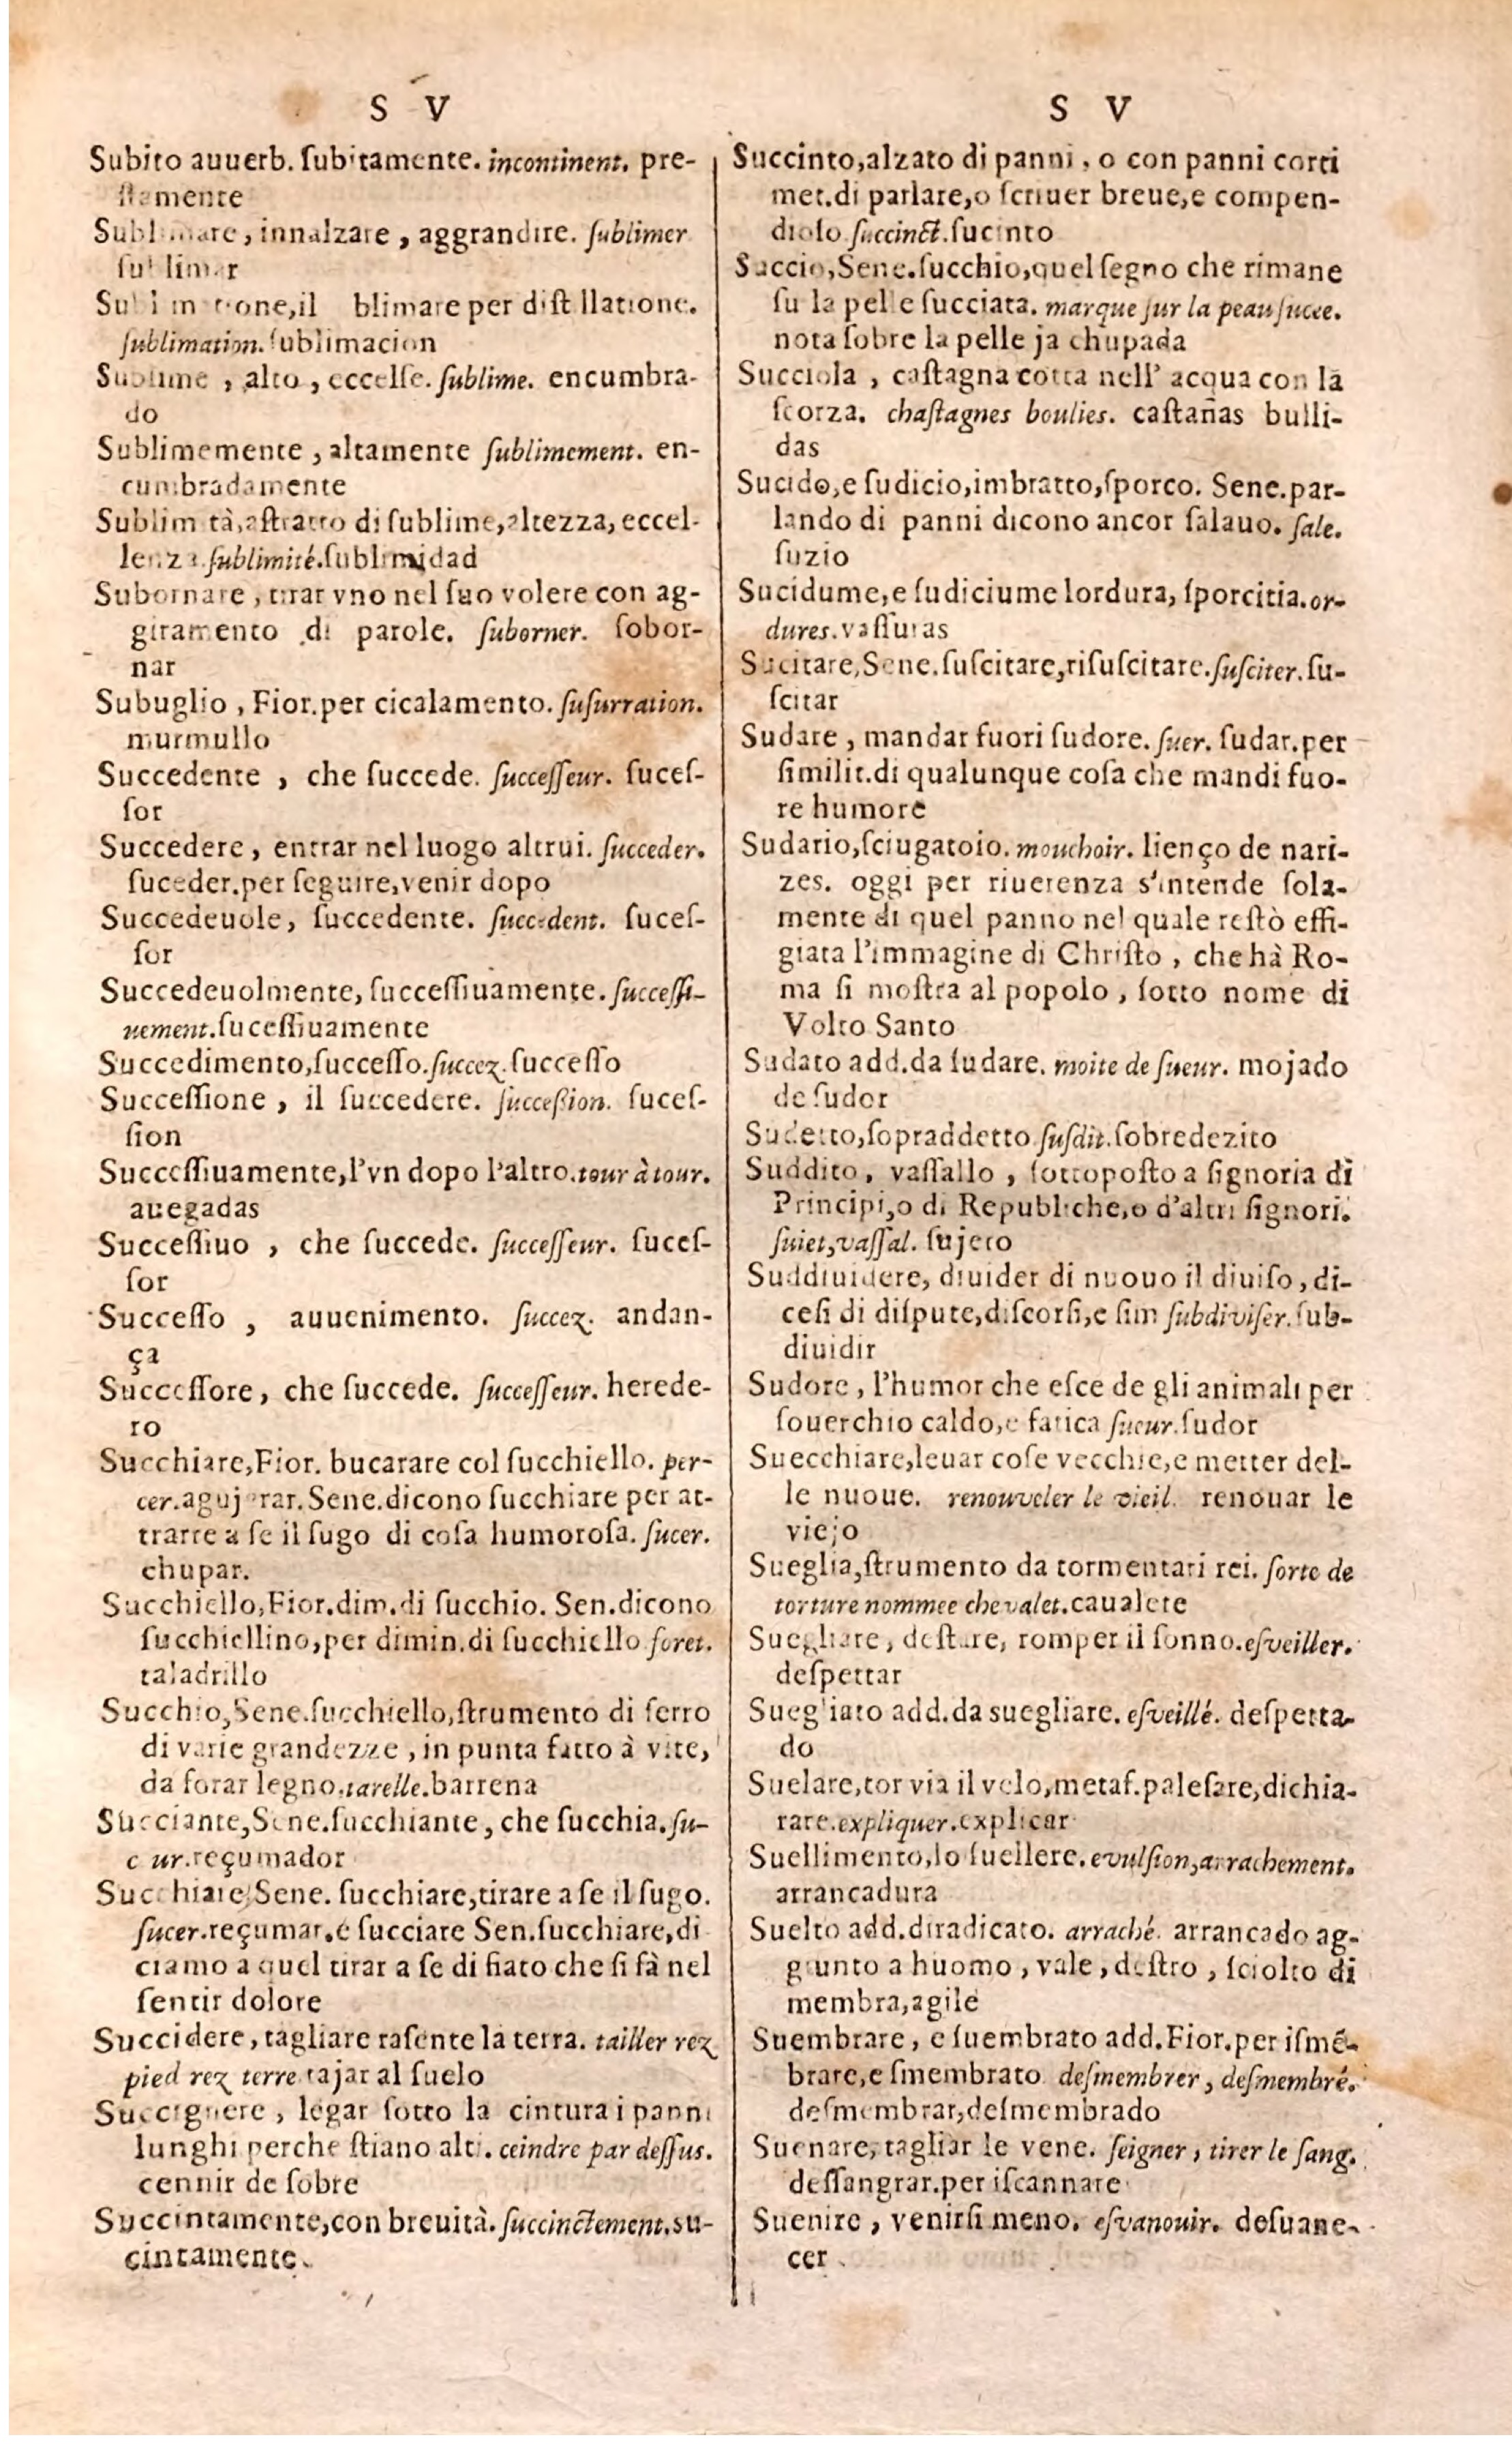 S V
Subito auuerb. ſubitamente. incontinent. pre-
ſtamente
Sublimare, innalzare, aggrandire. ſublimer
ſublimar
blimare per diſtillatione.
ſublimation. ſublimacion
Sublime, alto, eccelſe. ſublime. encumbra-
do
Sublimemente, altamente ſublimement. en-
cumbradamente
Sublimità, aſtratto di ſublime, altezza, eccel-
lenza. ſublimité. ſublimidad
Subornare, tirar vno nel ſuo volere con ag-
giramento di parole. ſuborner. ſobor-
nar
Subuglio, Fior. per cicalamento. ſuſurration.
murmullo
Succedente, che ſuccede. ſucceſſeur. ſuceſ-
ſor
Succedere, entrar nel luogo altrui. ſucceder.
ſuceder. per ſeguire, venir dopo
Succedeuole, ſuccedente. ſuccedent. ſuceſ-
ſor
Succedeuolmente, ſucceſſiuamente. ſucceſſi-
uement. ſuceſſiuamente
Succedimento, ſucceſſo. ſuccez. ſucceſſo
Succeſſione, il ſuccedere. ſucceßion. ſuceſ-
ſion
Succeſſiuamente, l'vn dopo l'altro. tour à tour.
auegadas
Succeſſiuo, che ſuccede. ſucceſſeur. ſuceſ-
ſor
Succeſſo, auuenimento. ſuccez. andan-
ça
Succeſſore, che ſuccede. ſucceſſeur. herede-
ro
Succhiare, Fior. bucarare col ſucchiello. per-
cer. agujerar. Sene. dicono ſucchiare per at-
trarre a ſe il ſugo di coſa humoroſa. ſucer.
chupar.
Succhiello, Fior. dim. di ſucchio. Sen. dicono
ſucchiellino, per dimin. di ſucchiello foret.
taladrillo
Succhio, Sene. ſucchiello, ſtrumento di ferro
di varie grandezze, in punta fatto à vite,
da forar legno. tarelle. barrena
Succiante, Sene. ſucchiante, che ſucchia. ſu-
c ur. reçumador
Succhiare, Sene. ſucchiare, tirare a ſe il ſugo.
ſucer. reçumar. e ſucciare Sen. ſucchiare, di
ciamo a quel tirar a ſe di fiato che ſi fà nel
ſentir dolore
Succidere, tagliare raſente la terra. tailler rez
pied rez terre tajar al ſuelo
Succignere, legar ſotto la cintura i panni
lunghi perche ſtiano alti. ceindre par deſſus.
cennir de ſobre
Succintamente, con breuità. ſuccinctement. su-
cintamente.
S V
Succinto, alzato di panni, o con panni corti
met. di parlare, o ſcriuer breue, e compen-
dioſo ſuccinct. ſucinto
Succio, Sene. ſucchio, quel ſegno che rimane
ſu la pelle ſucciata. marque ſur la peau ſucee.
nota ſobre la pelle ja chupada
Succiola, caſtagna cotta nell' acqua con la
ſcorza. chaſtagnes boulies. caſtañas bulli-
das
Sucido, e ſudicio, imbratto, ſporco. Sene. par-
lando di panni dicono ancor ſalauo. ſale.
ſuzio
Sucidume, e ſudiciume lordura, ſporcitia. or-
dures. vaſſuras
Sucitare, Sene. ſuſcitare, riſuſcitare. ſuſciter. ſu-
ſcitar
Sudare, mandar fuori ſudore. ſuer. ſudar. per
ſimilit. di qualunque coſa che mandi fuo-
re humore
Sudario, ſciugatoio. mouchoir. lienço de nari-
zes. oggi per riuerenza s'intende ſola-
mente di quel panno nel quale reſtò effi-
giata l'immagine di Chriſto, che hà Ro-
ma ſi moſtra al popolo, ſotto nome di
Volto Santo
Sudato add. da ſudare. moite de ſueur. mojado
de ſudor
Sudetto, ſopraddetto ſuſdit. ſobredezito
Suddito, vaſſallo, ſottopoſto a ſignoria di
Principi, o di Republiche, o d'altri ſignori.
ſuiet, vaſſal. ſujeto
Suddiuidere, diuider di nuouo il diuiſo, di-
ceſi di diſpute, diſcorſi, e ſim ſubdiviſer. ſub-
diuidir
Sudore, l'humor che eſce de gli animali per
ſouerchio caldo, e fatica ſueur. ſudor
Suecchiare, leuar coſe vecchie, e metter del-
le nuoue. renouveler le vieil. renouar le
viejo
Sueglia, ſtrumento da tormentari rei. ſorte de
torture nommee chevalet. caualete
Suegliare, deſtare, romper il ſonno. eſveiller.
deſpertar
Suegliato add. da suegliare. eſveillé. deſperta-
do
Suelare, tor via il velo, metaf. paleſare, dichia-
rare. expliquer. explicar
Suellimento, lo ſuellere. evulſion, arrachement.
arrancadura
Suelto add. diradicato. arraché. arrancado ag-
giunto a huomo, vale, deſtro, ſciolto di
membra, agile
Suembrare, e ſuembrato add. Fior. per iſmẽ-
brare, e ſmembrato deſmembrer, deſmembré.
deſmembrar, deſmembrado
Suenare, tagliar le vene. ſeigner, tirer le ſang.
deſſangrar. per iſcannare
Suenire, venirſi meno. eſvanouir. deſuane-
cer